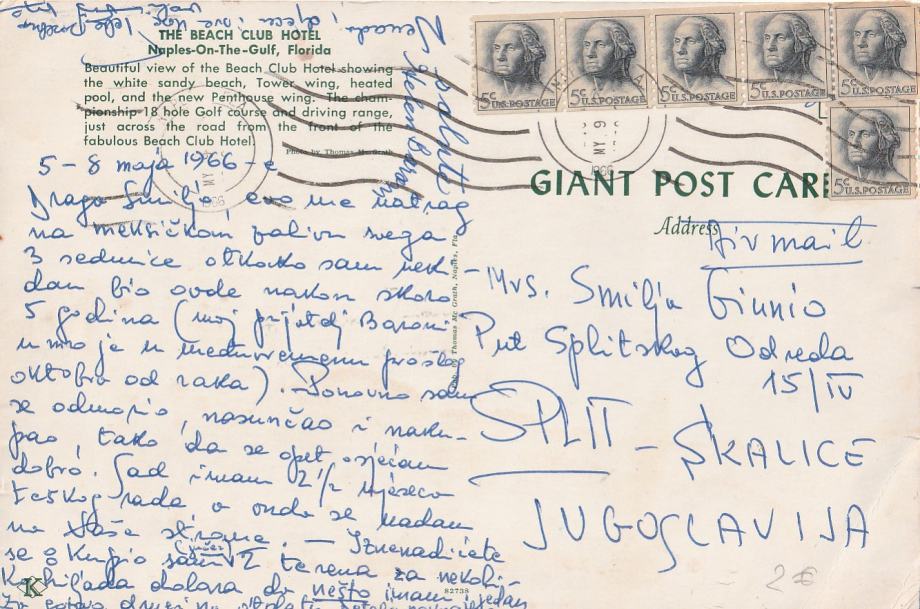 THE BEACH CLUB HOTEL
Naples-On-The-Gulf, Florida
Beautiful view of the Beach Club Hotel showing
the white sandy beach, Tower wing, heated
pool, and the new Penthouse wing. The cham-
pionship 18 hole Golf course and driving range,
just across the road from the front of the
fabulous Beach Club Hotel.
Photo by Thomas Mc Grath
5-8 maja 1966-e
Draga Smiljo, evo me natrag
na meksičkom zalivu svega
3 sedmice otkako sam nek-
dan bio ovde nakon skoro
5 godina (moj prijatelj Baroni
umro je u međuvremenu prošlog
oktobra od raka). Ponovno sam
se odmorio, nasunčao i naku-
pao, tako da se opet osjećam
dobro. Sad imam 2 1/2 mjeseca
teškog rada, a onda se nadam
na Vaše strane. — Iznenadićete
se: Kupio sam (jučer) 2 terena za nekoli-
ko hiljada dolara da nešto imam i jedan
Pub. by Thomas Mc Grath, Naples, Fla.
82738
K
5¢ U.S. POSTAGE
5¢ U.S. POSTAGE
5¢ U.S. POSTAGE
5¢ U.S. POSTAGE
5¢ U.S. POSTAGE
5¢ U.S. POSTAGE
MY 9
1966
GIANT POST CARD
Address
Airmail
Mrs. Smilja Giunio
Put Splitskog Odreda
15/IV
SPLIT - SKALICE
JUGOSLAVIJA
2 €